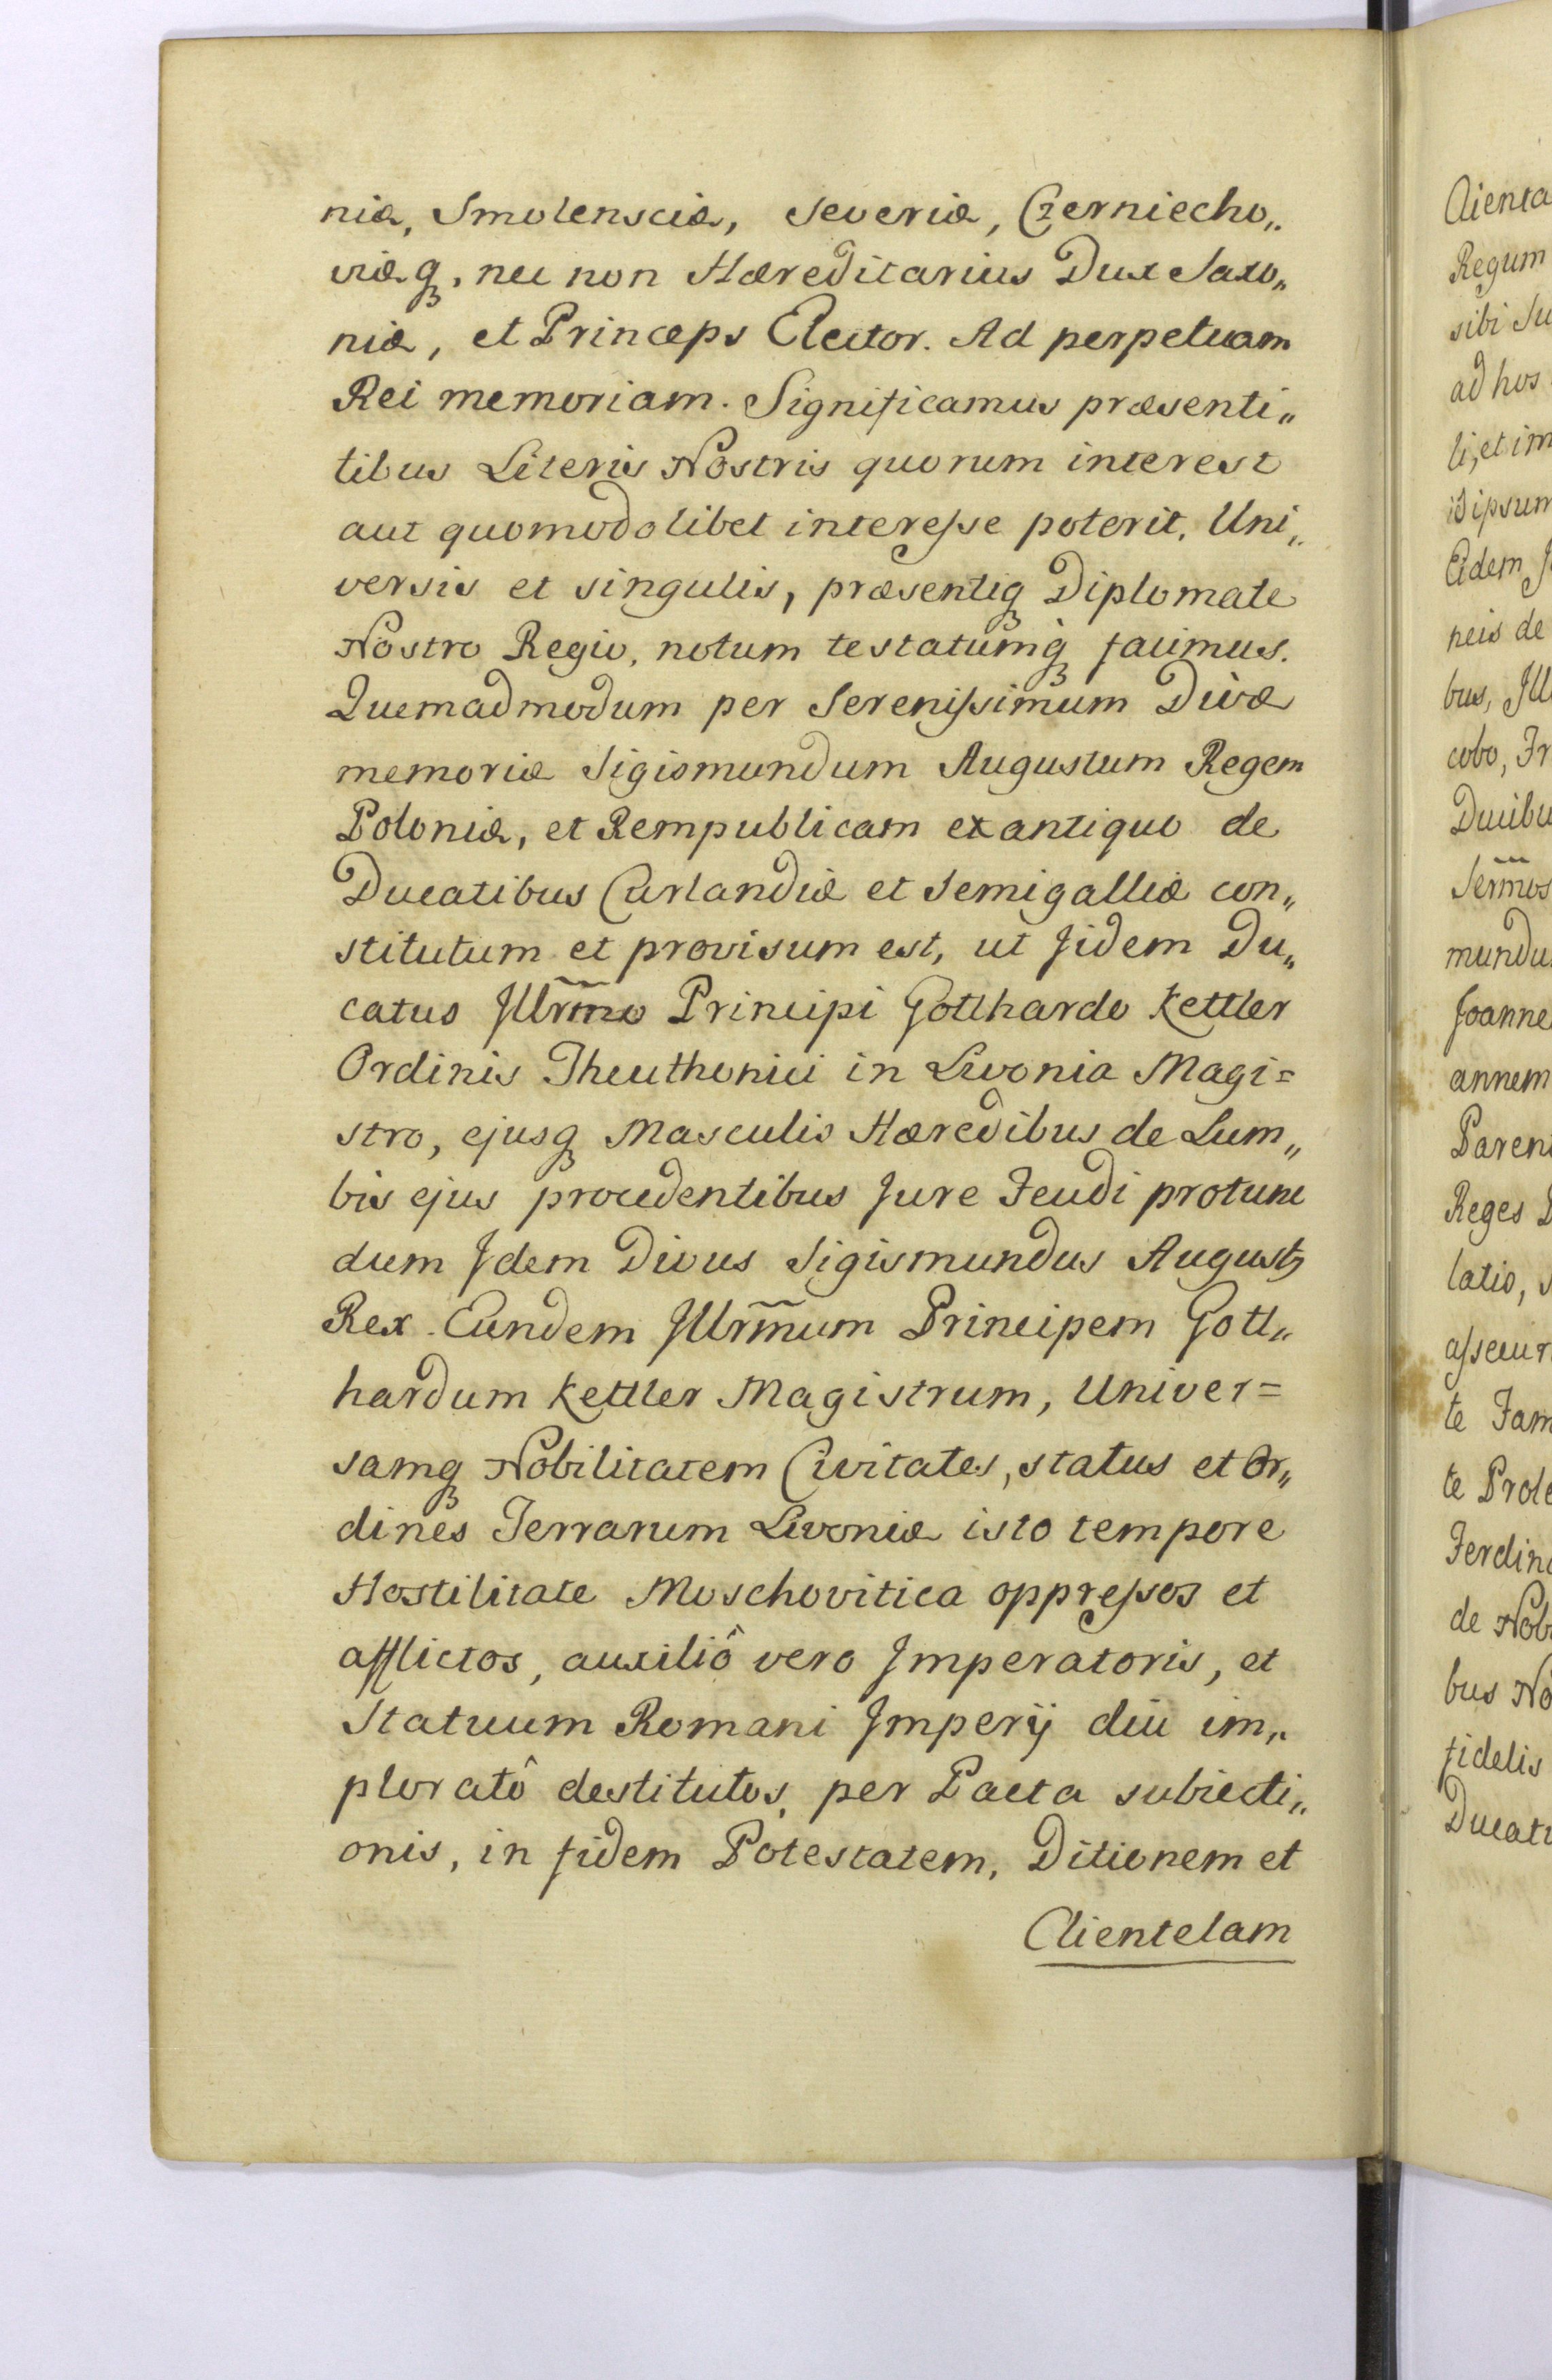 niæ, Smolensciæ, Severiæ, Czerniecho„
viæq₃, nec non Hæreditarius Dux Saxo„
niæ, et Princeps Elector. Ad perpetuam
Rei memoriam. Significamus præsenti„
tibus Literis Nostris quorum interest
aut quomodolibet interesse poterit, Uni„
versis et singulis, præsentiq₃ Diplomate
Nostro Regio, notum testatumq₃ facimus.
Quemadmodum per Serenissimum Divæ
memoriæ Sigismundum Augustum Regem
Poloniæ, et Rempublicam ex antiquo de
Ducatibus Curlandiæ et Semigalliæ con„
stitutum et provisum est, ut Jidem Du„
catus Jllrm̃o Principi Gotthardo Kettler
Ordinis Theuthonici in Livonia Magi=
stro, ejusq₃ Masculis Hæredibus de Lum„
bis ejus procedentibus Jure Feudi protunc
dum Jdem Divus Sigismundus August₉
Rex. Eundem Jllrm̃um Principem Gott„
hardum Kettler Magistrum, Univer=
samq₃ Nobilitatem Civitates, status et Or„
dines Terrarum Livoniæ isto tempore
Hostilitate Moschovitica oppressos et
afflictos, auxiliô vero Jmperatoris, et
Statuum Romani Jmperij diu im„
ploratô destitutos, per Pacta subiecti„
onis, in fidem Potestatem, Ditionem et
Clientelam
Clienta
Regum
sibi Su
ad hos
li, et im
idipsum
Eidem J
neis de
bus, Jll
cobo, Fr
Ducibu
Serm̃os
mundu
Joanne
annem
Paren
Reges
latio, s
assecur
te Fam
te Prole
Ferdina
de Nob
bus No
fidelis
Ducatu